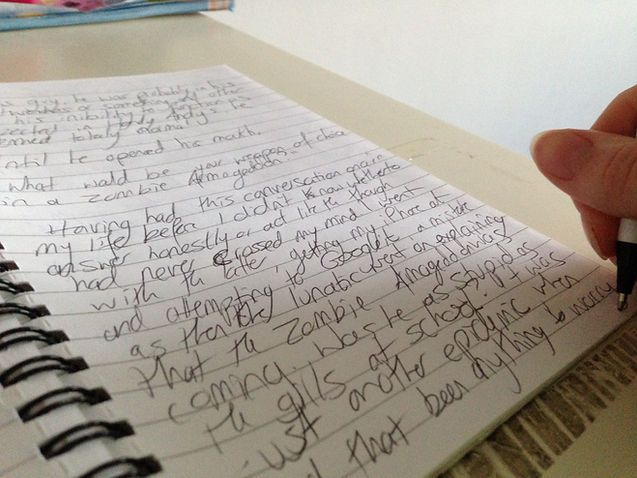 guy, he was probably in his
or something or other
his inibility to function as
in Andy's
totally normal
until he opened his mouth.
What would be your weapon of choice
in a Zombie Armageddon.
Having had this conversation again
my life before I didn't know whether to
answer honestly or act like the though
had never crossed my mind. I went
with the later, getting my iPhone out
and attempting to Google
as the lunatic went on explaining
that the Zombie Armageddon was
coming. Was he as stupid as
the girls at school. I was
just another epidemic when
that been anything to worry